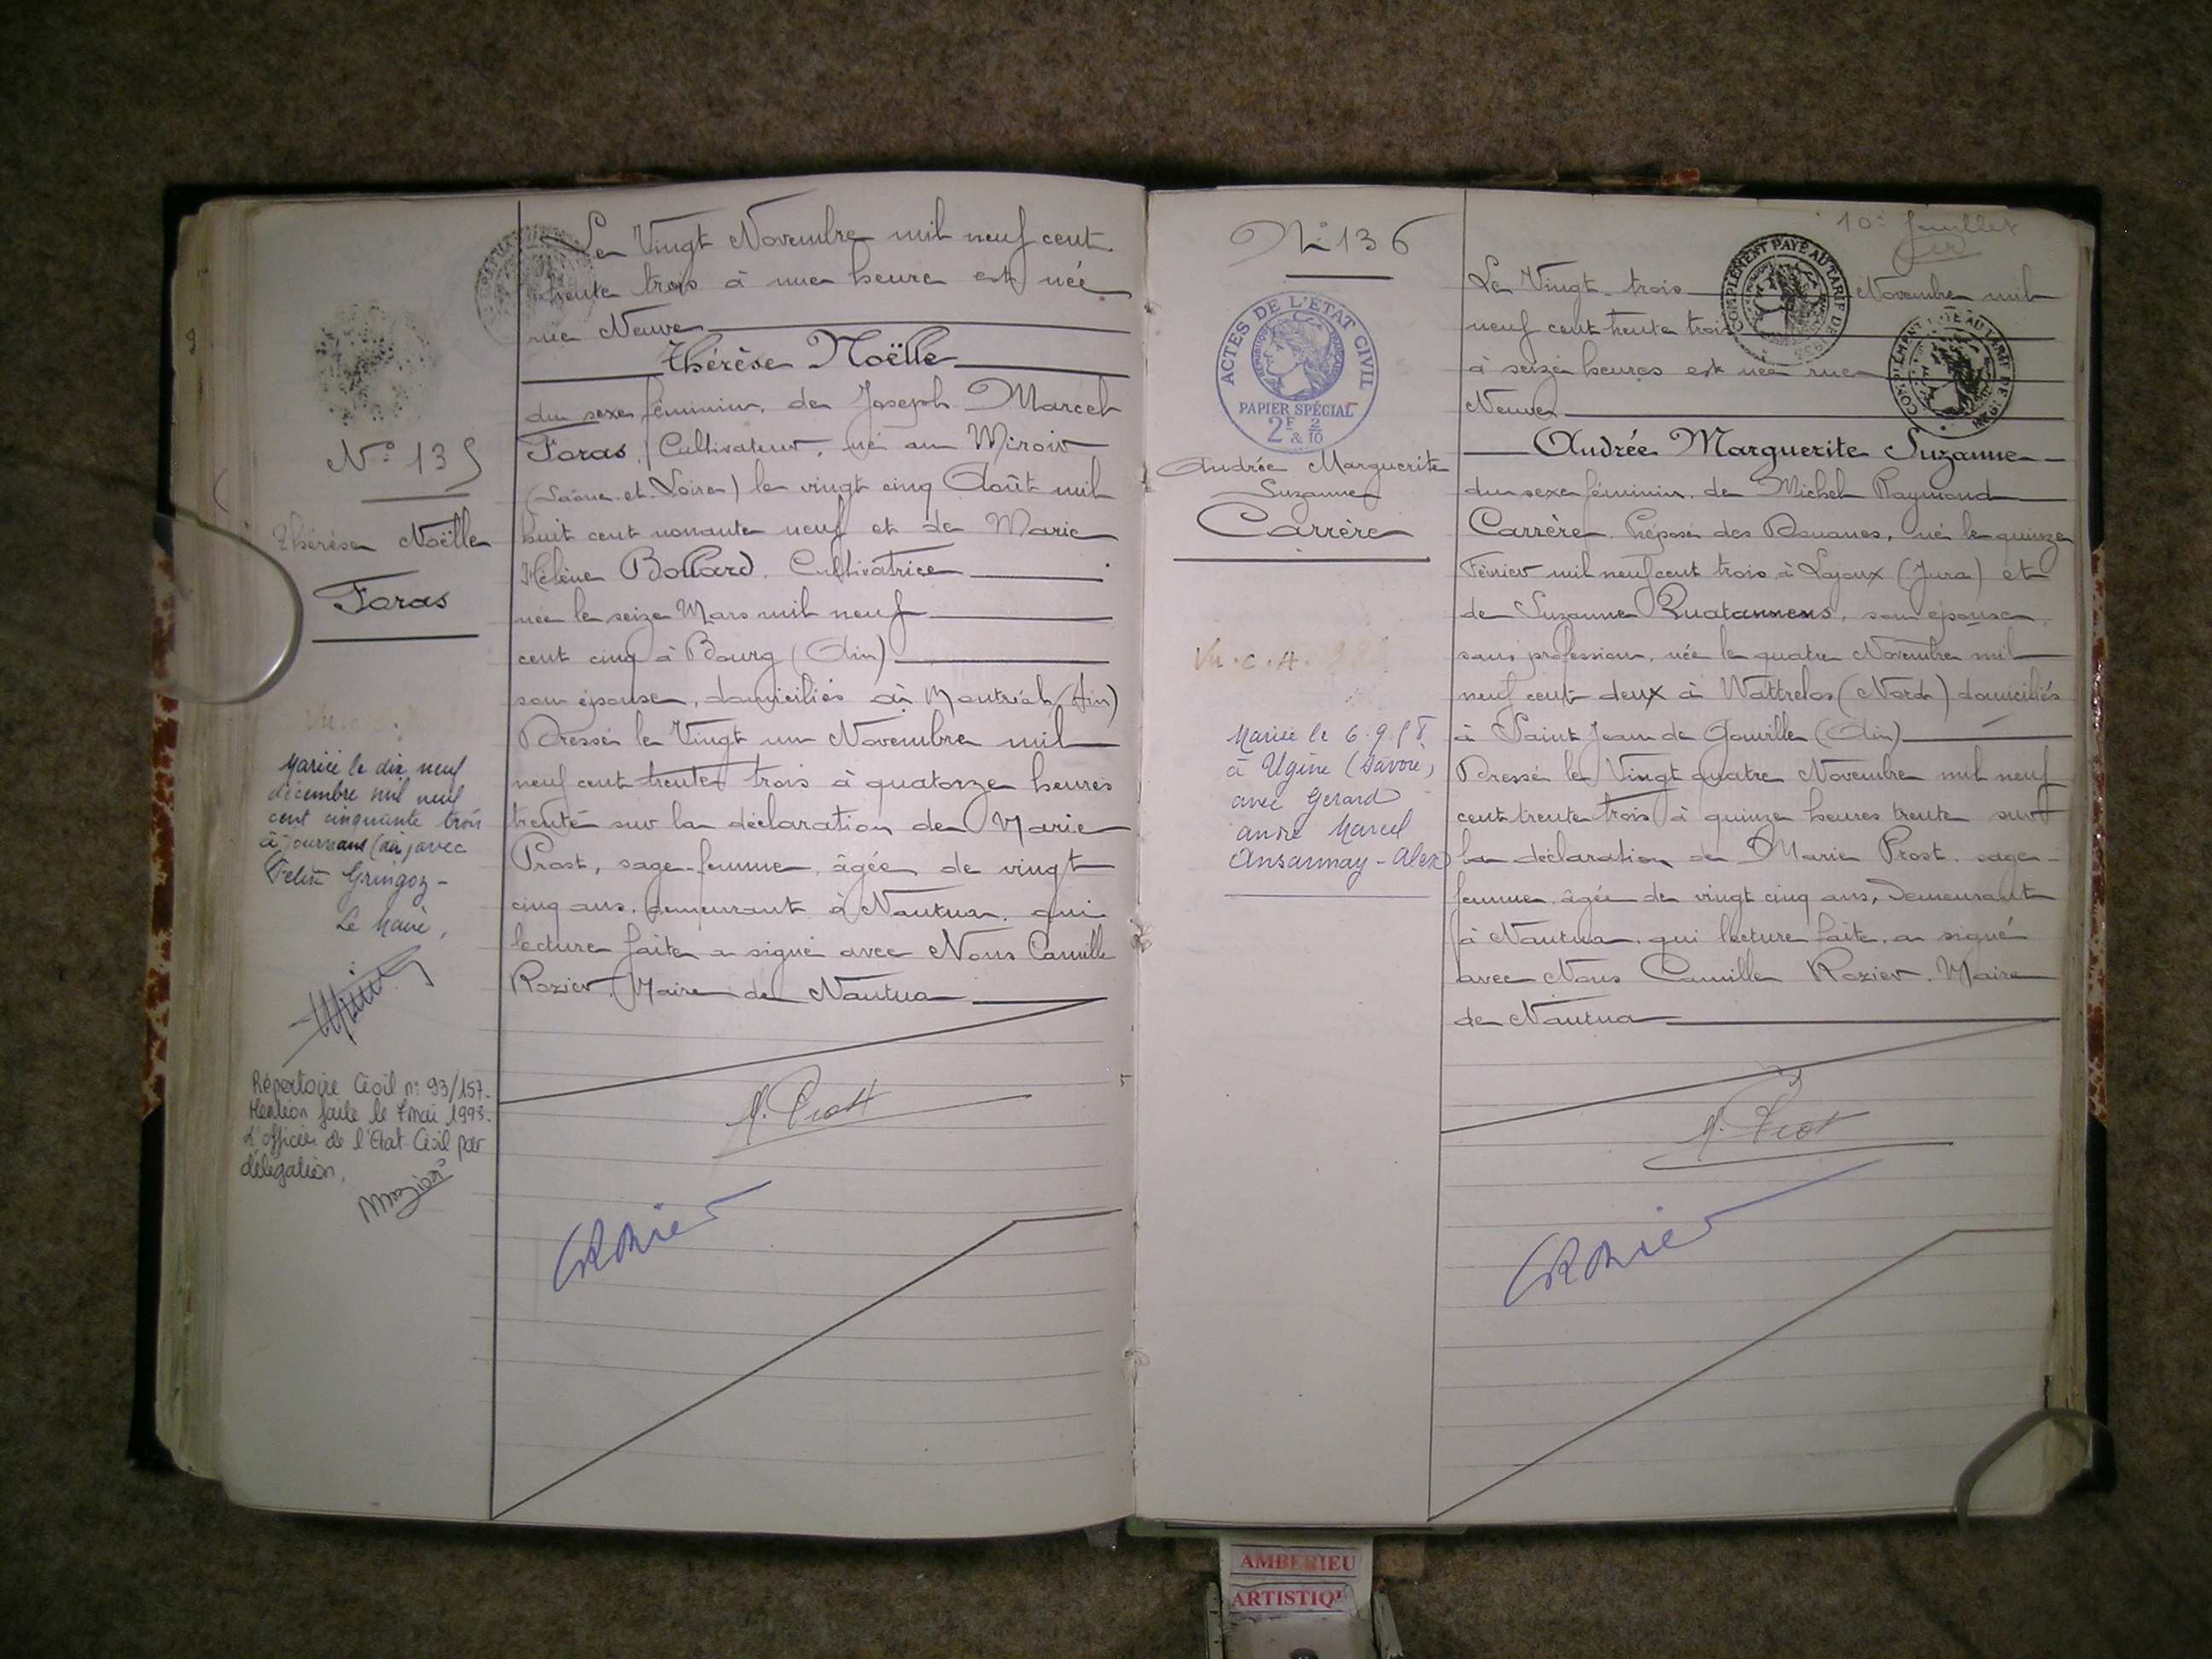 Le Vingt Novembre mil neuf cent
trente trois à une heure est née
rue Neuve
Thérèse Noëlle
du sexe féminin, de Joseph Marcel
Foras, Cultivateur, né au Miroir
(Saône-et-Loire) le vingt cinq Août mil
huit cent nonante neuf et de Marie
Hélène Bollard, Cultivatrice
née le seize Mars mil neuf
cent cinq à Bourg (Ain)
son épouse, domiciliés à Montréal (Ain)
Dressé le Vingt un Novembre mil
neuf cent trente trois à quatorze heures
trente sur la déclaration de Marie
Prost, sage-femme, âgée de vingt
cinq ans, demeurant à Nantua, qui
lecture faite a signé avec Nous Camille
Rozier, Maire de Nantua
M. Prost
CRozier
N° 135
Thérèse Noëlle
Foras
Mariée le dix neuf
décembre mil neuf
cent cinquante trois
à Journans (Ain) avec
Félix Gringoz -
Le Maire,
Répertoire Civil n° 93/157.
Mention faite le 7 mai 1993.
L'officier de l'Etat Civil par
délégation,
N° 136
ACTES DE L'ÉTAT CIVIL
PAPIER SPÉCIAL
2F & 2/10
Andrée Marguerite
Suzanne
Carrère
Vu. C. A.
Mariée le 6.9.58
à Ugine (Savoie)
avec Gérard
André Marcel
Ansannay-Alex
10: Juillet
COMPLÉMENT PAYÉ AU TARIF DE
Le Vingt-trois Novembre mil
neuf cent trente trois
à seize heures est née rue
Neuve
Andrée Marguerite Suzanne
du sexe féminin, de Michel Raymond
Carrère, Préposé des Douanes, né le quinze
Février mil neuf cent trois à Lajoux (Jura) et
de Suzanne Quatannens, son épouse,
sans profession, née le quatre Novembre mil
neuf cent deux à Wattrelos (Nord) domiciliés
à Saint Jean de Gonville (Ain)
Dressé le Vingt quatre Novembre mil neuf
cent trente trois à quinze heures trente sur
la déclaration de Marie Prost, sage-
femme, âgée de vingt cinq ans, demeurant
à Nantua, qui lecture faite, a signé
avec Nous Camille Rozier, Maire
de Nantua
M. Prost
CRozier
AMBERIEU
ARTISTIQ